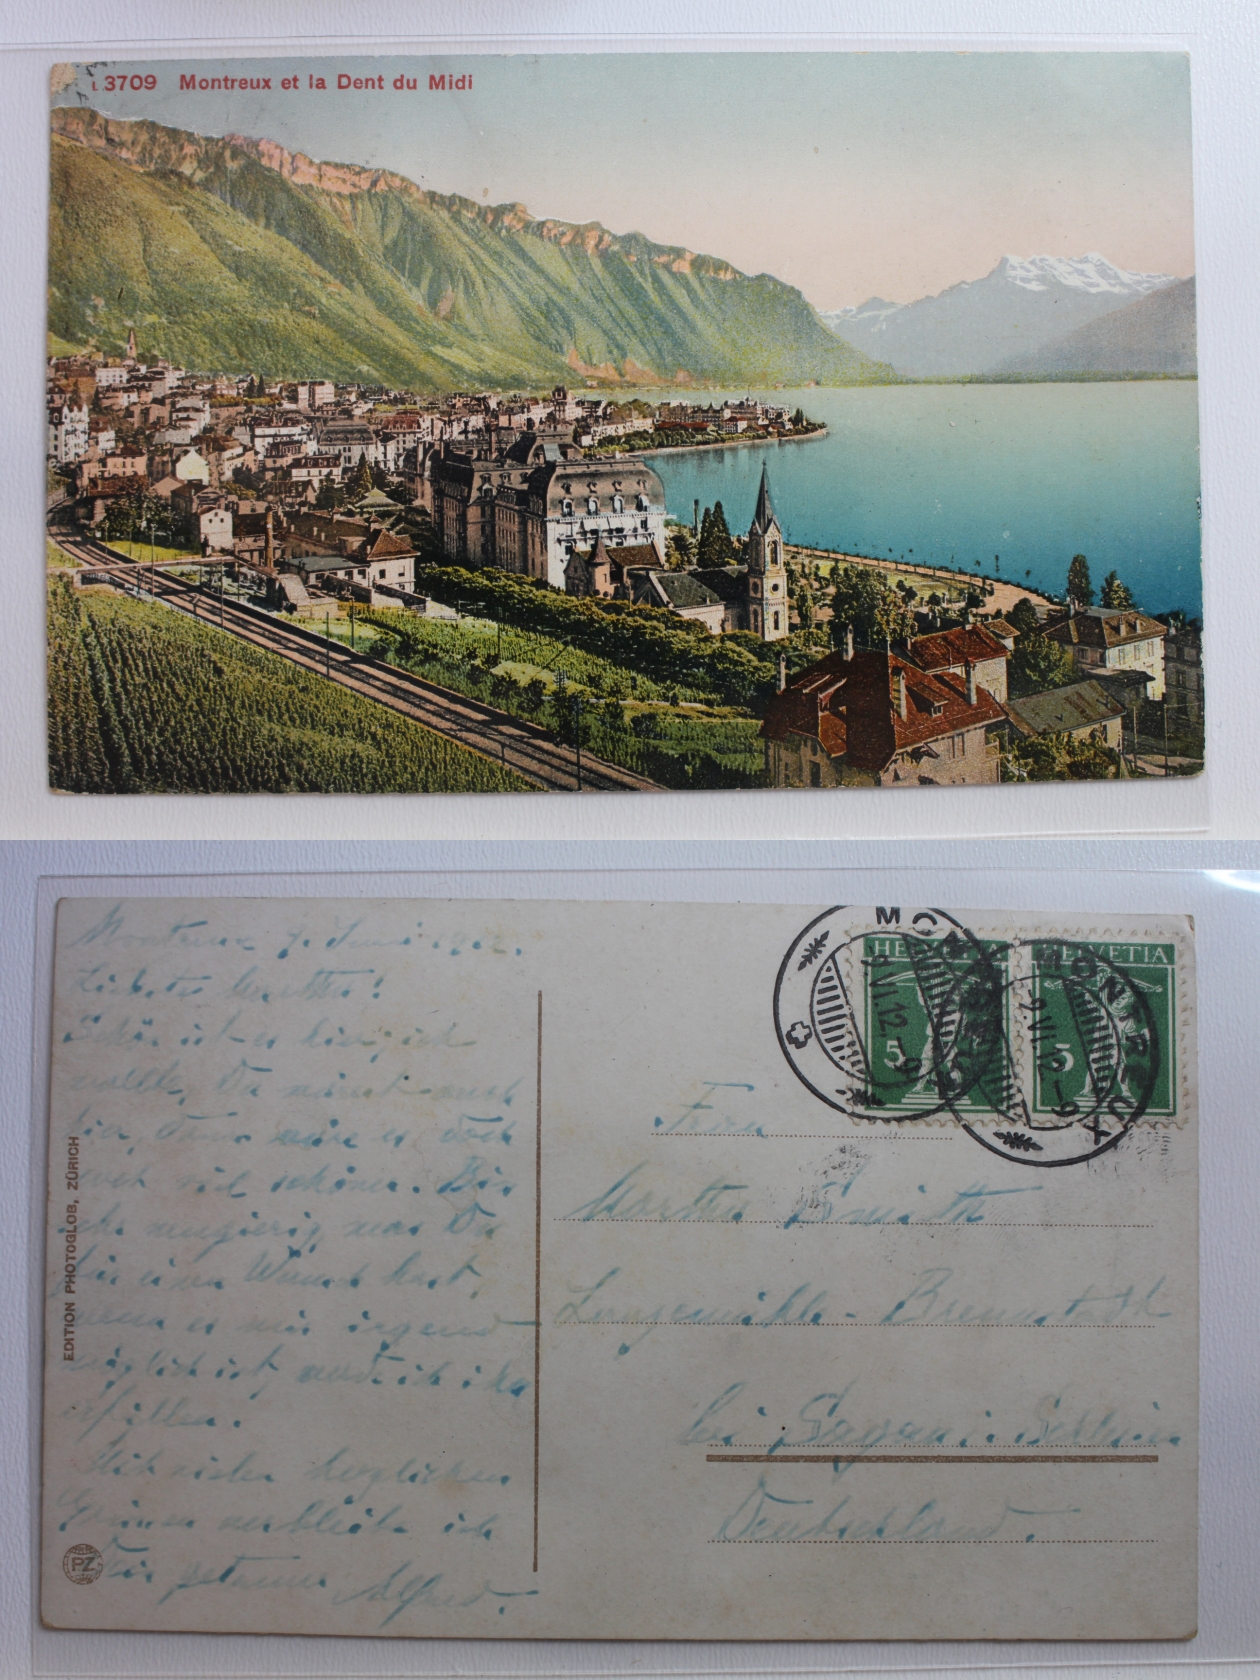 L.3709 Montreux et la Dent du Midi
Montreux 9. Juni 1912.
Liebes Gretchen!
Schön ist es hier, ich
wollte, Du wärst auch
hier, dann wäre es doch
noch viel schöner. Bin
sehr neugierig was Du
für einen Wunsch hast,
wenn es mir irgend
möglich ist, werde ich ihn
erfüllen.
Mit vielen herzlichen
Grüssen verbleibe ich
Dein getreuer Alfred.
EDITION PHOTOGLOB, ZÜRICH
PZ
HELVETIA
5
HELVETIA
5
MONTREUX
9.VI.12.-9
MONTREUX
9.VI.12.-9
Frau
Martha Smith
Langemühle - Brennstadt
bei Sagan i. Schlesien
Deutschland.